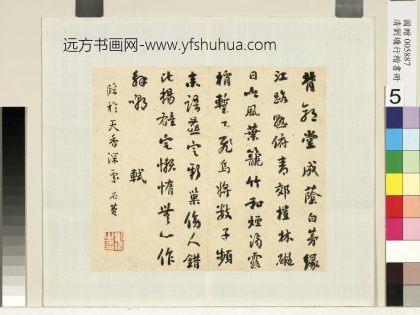 远方书画网-www.yfshuhua.com
背郭堂成蔭白茅緣
江路熟俯青郊榿林礙
日吟風葉籠竹和煙滴露
梢暫止飛烏將數子頻
來語燕定新巢傍人錯
比揚雄宅懶惰無心作
解嘲 軾
臨於天香深處 石菴
國贈 005887
清劉墉行楷書冊
5